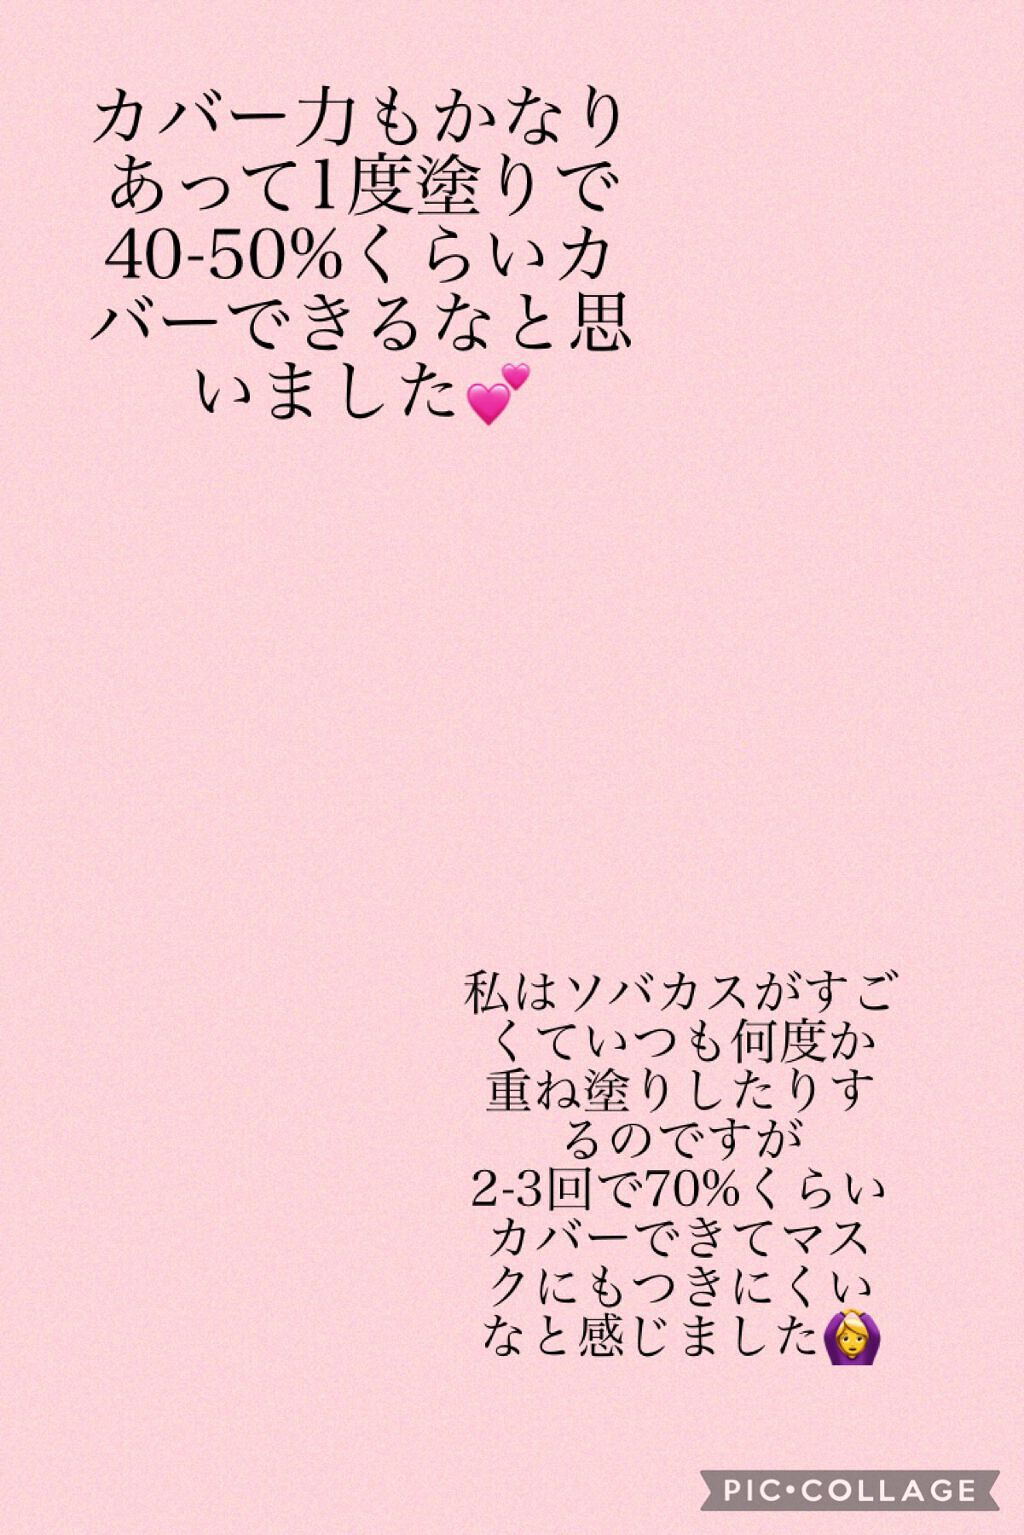 カバー力もかなり
あって1度塗りで
40-50%くらいカ
バーできるなと思
いました💕
私はソバカスがすご
くていつも何度か
重ね塗りしたりす
るのですが
2-3回で70%くらい
カバーできてマス
クにもつきにくい
なと感じました🙆‍♀️
PIC•COLLAGE